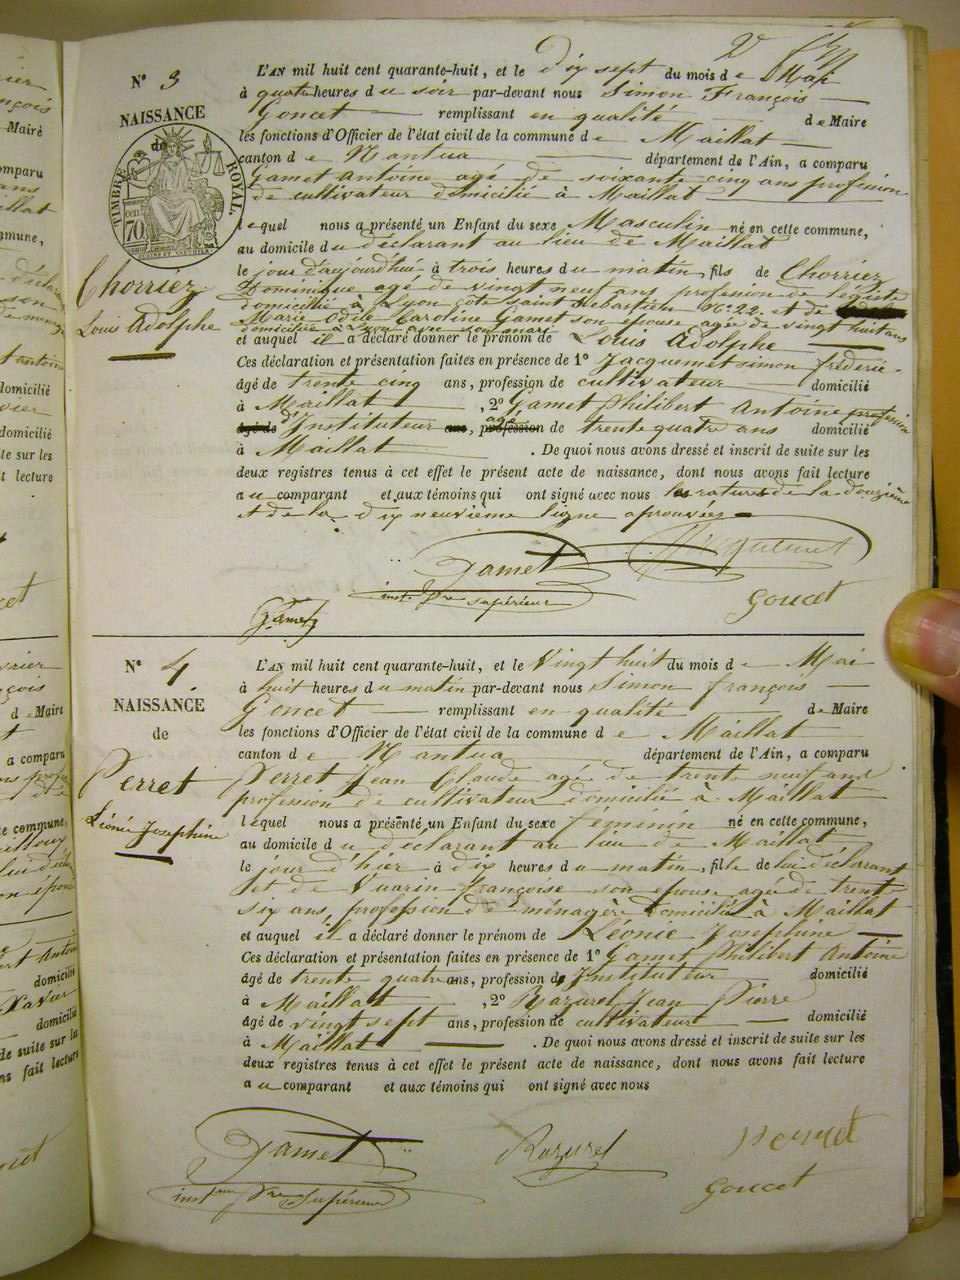 N° 3
NAISSANCE
de
TIMBRE ROYAL.
70
Chorriez
Louis Adolphe
L'AN mil huit cent quarante-huit, et le Dix sept du mois de Mai
à quatre heures du soir par-devant nous Simon François
Goncet remplissant en qualité de Maire
les fonctions d'Officier de l'état civil de la commune de Maillat
canton de Nantua département de l'Ain, a comparu
Gamet Antoine agé de soixante cinq ans profession
de cultivateur domicilié à Maillat
lequel nous a présenté un Enfant du sexe Masculin né en cette commune,
au domicile du déclarant au lieu de Maillat
le jour d'aujourd'hui à trois heures du matin, fils de Chorriez
Dominique agé de vingt neuf ans profession de
domicilié à Lyon côte saint Sébastien N° 22. et de
Marie Odile Caroline Gamet son épouse agée de vingt huit ans
domiciliée à Lyon avec son mari
et auquel il a déclaré donner le prénom de Louis Adolphe
Ces déclaration et présentation faites en présence de 1° Jacquemet simon fréderic
âgé de trente cinq ans, profession de cultivateur domicilié
à Maillat , 2° Gamet Philibert Antoine profession
âgé de d'Instituteur ans, profession agé de trente quatre ans domicilié
à Maillat . De quoi nous avons dressé et inscrit de suite sur les
deux registres tenus à cet effet le présent acte de naissance, dont nous avons fait lecture
au comparant et aux témoins qui ont signé avec nous les ratures de la douzième
et de la dix neuvième ligne aprouvées
Gamet
inst. pre supérieur
Goncet
Gamet
N° 4
NAISSANCE
de
Perret
Léonie Josephine
L'AN mil huit cent quarante-huit, et le Vingt huit du mois de Mai
à huit heures du matin par-devant nous Simon françois
Goncet remplissant en qualité de Maire
les fonctions d'Officier de l'état civil de la commune de Maillat
canton de Nantua département de l'Ain, a comparu
Perret Jean Claude agé de trente neuf ans
profession de cultivateur domicilié à Maillat
lequel nous a présenté un Enfant du sexe feminin né en cette commune,
au domicile du déclarant au lieu de Maillat
le jour d'hier à dix heures du matin, fille de lui déclarant
et de Vuarin françoise son épouse agée de trente
six ans, profession de ménagère domiciliée à Maillat
et auquel il a déclaré donner le prénom de Léonie Josephine
Ces déclaration et présentation faites en présence de 1° Gamet Philibert Antoine
âgé de trente quatre ans, profession d'Instituteur domicilié
à Maillat , 2° Razurel Jean Pierre
âgé de vingt sept ans, profession de cultivateur domicilié
à Maillat . De quoi nous avons dressé et inscrit de suite sur les
deux registres tenus à cet effet le présent acte de naissance, dont nous avons fait lecture
au comparant et aux témoins qui ont signé avec nous
Gamet
pre Supérieur
Razurel
Perret
Goncet